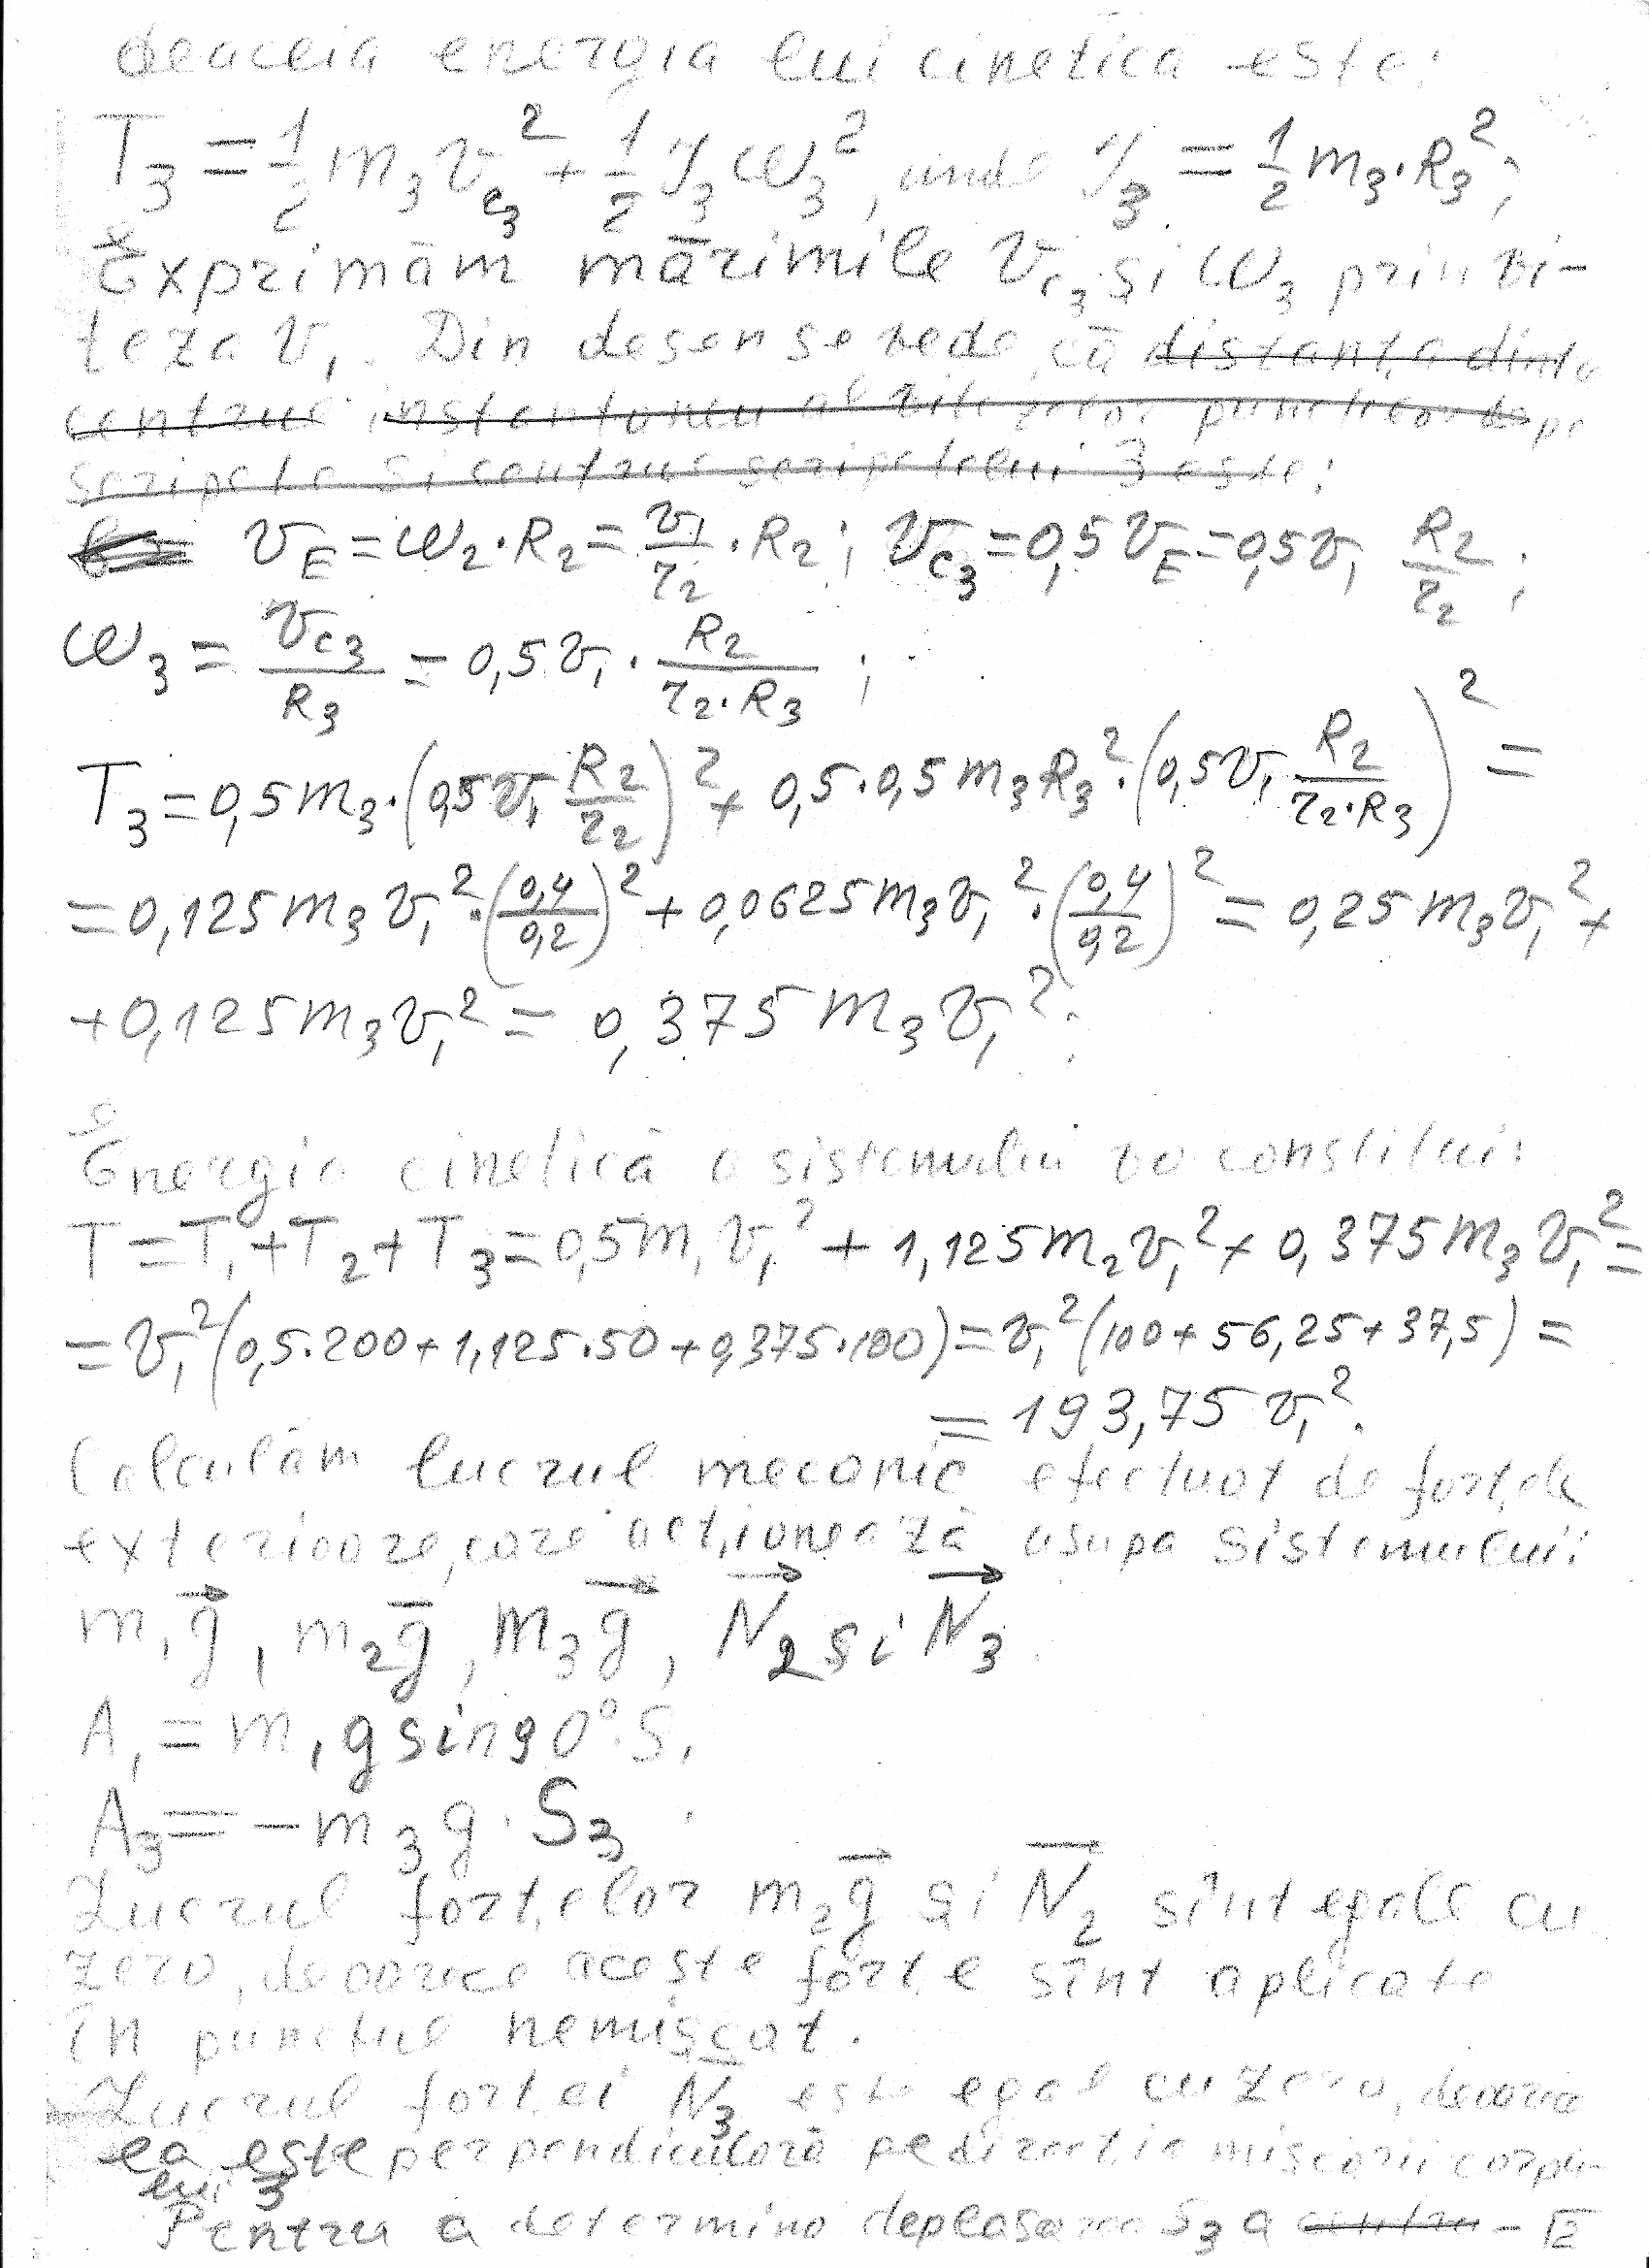 deaceia energia lui cinetica este:
T₃ = 1/2 m₃ v_c₃² + 1/2 J₃ ω₃², unde J₃ = 1/2 m₃·R₃²;
Exprimăm mărimile v_c₃ și ω₃ prin vi-
teza v₁. Din desen se vede că distanța dinte
centrul instantaneu al vitezelor punctelor de pe
scripete și centrul scripetelui 3 este:
v_E = ω₂·R₂ = v₁/r₂ · R₂; v_c₃ = 0,5 v_E = 0,5 v₁ R₂/r₂;
ω₃ = v_c₃/R₃ = 0,5 v₁ · R₂/(r₂·R₃);
T₃ = 0,5 m₃·(0,5 v₁ R₂/r₂)² + 0,5·0,5 m₃ R₃²·(0,5 v₁ R₂/(r₂·R₃))² =
= 0,125 m₃ v₁²·(0,4/0,2)² + 0,0625 m₃ v₁²·(0,4/0,2)² = 0,25 m₃ v₁² +
+ 0,125 m₃ v₁² = 0,375 m₃ v₁².
Energia cinetică a sistemului va constitui:
T = T₁ + T₂ + T₃ = 0,5 m₁ v₁² + 1,125 m₂ v₁² + 0,375 m₃ v₁² =
= v₁² (0,5·200 + 1,125·50 + 0,375·100) = v₁² (100 + 56,25 + 37,5) =
= 193,75 v₁².
Calculăm lucrul mecanic efectuat de forțele
exterioare, care acționează asupa sistemului:
m₁g⃗, m₂g̅, m₃g⃗, N⃗₂ si N⃗₃.
A₁ = m₁ g sin 90°·S₁
A₃ = -m₃ g·S₃
Lucrul forțelor m₂g⃗ și N⃗₂ sînt egale cu
zero, deoarece aceste forțe sînt aplicate
în punctul nemișcat.
Lucrul forței N̅₃ este egal cu zero, deoarice
ea este perpendiculară pe direcția mișcării corpu-
lui 3
Pentru a determina deplasarea S₃ a centru -12